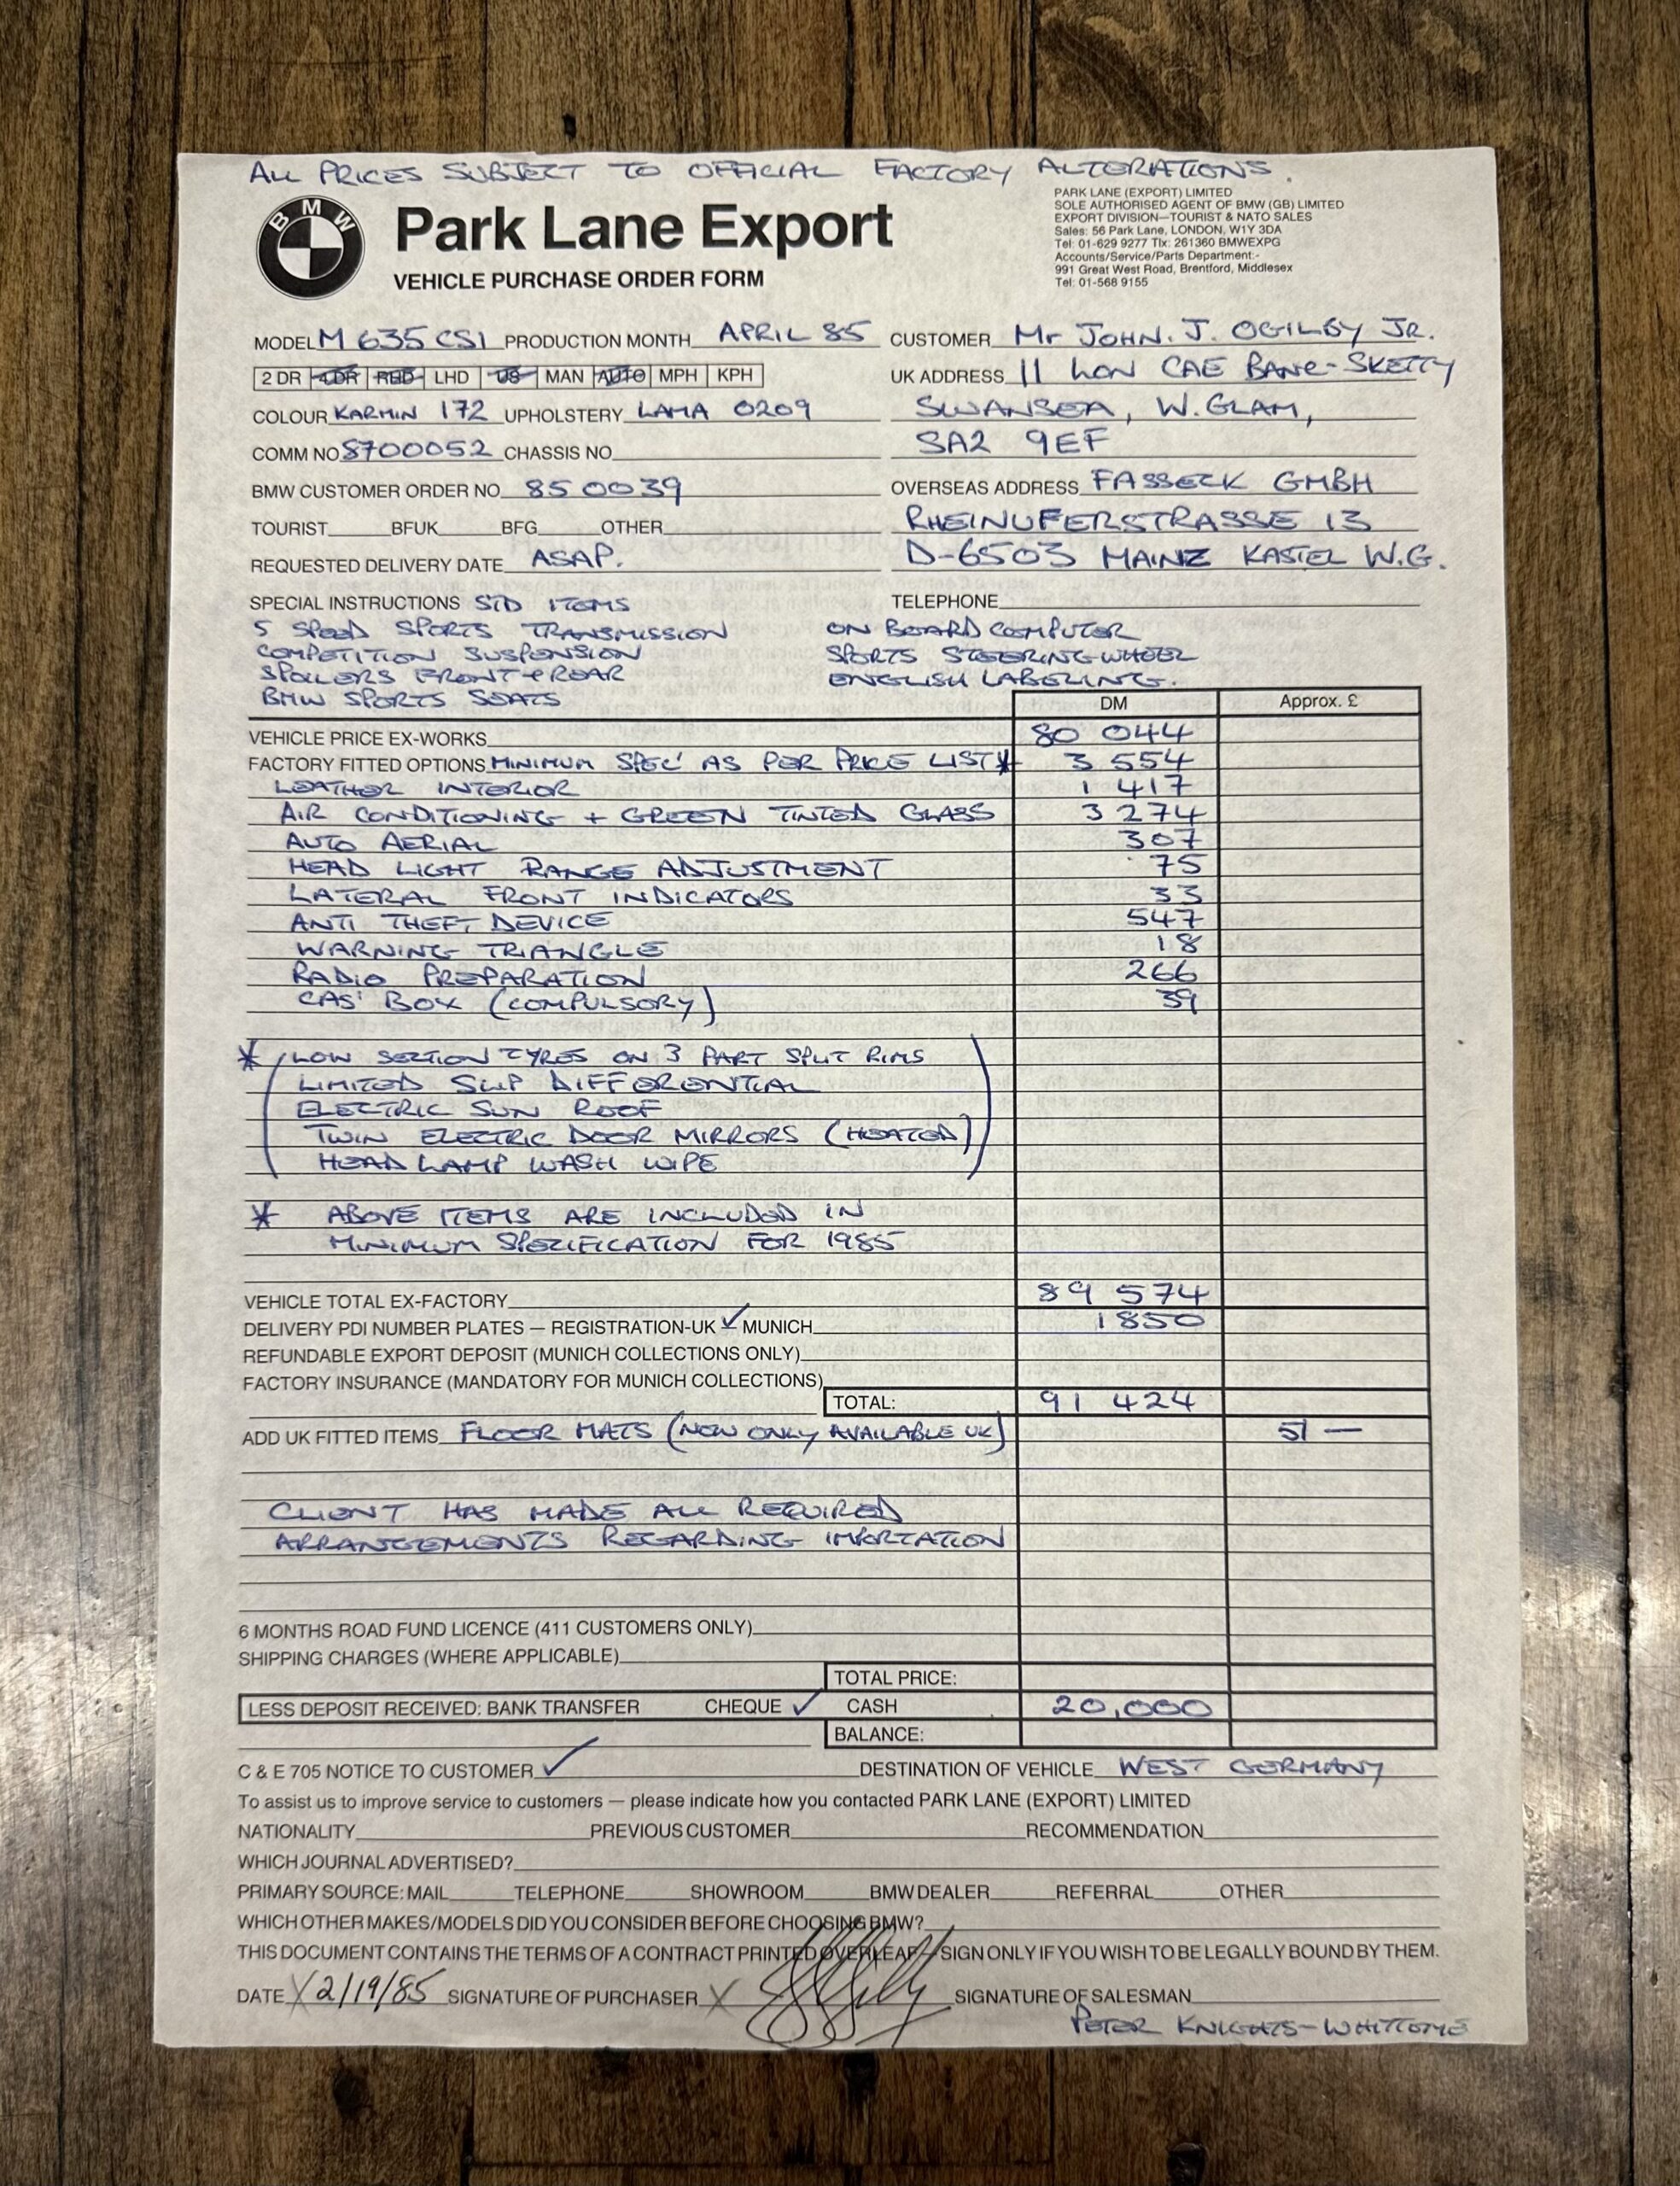 ALL PRICES SUBJECT TO OFFICIAL FACTORY ALTERATIONS.
BMW
Park Lane Export
VEHICLE PURCHASE ORDER FORM
PARK LANE (EXPORT) LIMITED
SOLE AUTHORISED AGENT OF BMW (GB) LIMITED
EXPORT DIVISION—TOURIST & NATO SALES
Sales: 56 Park Lane, LONDON, W1Y 3DA
Tel: 01-629 9277 Tlx: 261360 BMWEXPG
Accounts/Service/Parts Department:-
991 Great West Road, Brentford, Middlesex
Tel: 01-568 9155
MODEL M 635 CSI PRODUCTION MONTH APRIL 85 CUSTOMER Mr JOHN. J. OGILBY JR.
2 DR 4 DR RHD LHD US MAN AUTO MPH KPH UK ADDRESS 11 LON CAE BANC-SKETTY
COLOUR KARMIN 172 UPHOLSTERY LAMA 0209 SWANSEA, W.GLAM,
COMM NO 8700052 CHASSIS NO SA2 9EF
BMW CUSTOMER ORDER NO 850039 OVERSEAS ADDRESS FASSECK GMBH
TOURIST BFUK BFG OTHER RHEINUFERSTRASSE 13
REQUESTED DELIVERY DATE ASAP. D-6503 MAINZ KASTEL W.G.
SPECIAL INSTRUCTIONS STD ITEMS TELEPHONE
5 SPEED SPORTS TRANSMISSION ON BOARD COMPUTER
COMPETITION SUSPENSION SPORTS STEERING WHEEL
SPOILERS FRONT + REAR ENGLISH LABELING.
BMW SPORTS SEATS DM Approx. £
VEHICLE PRICE EX-WORKS 80 044
FACTORY FITTED OPTIONS MINIMUM SPEC' AS PER PRICE LIST* 3 554
LEATHER INTERIOR 1 417
AIR CONDITIONING + GREEN TINTED GLASS 3 274
AUTO AERIAL 307
HEAD LIGHT RANGE ADJUSTMENT 75
LATERAL FRONT INDICATORS 33
ANTI THEFT DEVICE 547
WARNING TRIANGLE 18
RADIO PREPARATION 266
CAS' BOX (COMPULSORY) 39
* (LOW SECTION TYRES ON 3 PART SPLIT RIMS
LIMITED SLIP DIFFERENTIAL
ELECTRIC SUN ROOF
TWIN ELECTRIC DOOR MIRRORS (HEATED)
HEAD LAMP WASH WIPE)
* ABOVE ITEMS ARE INCLUDED IN
MINIMUM SPECIFICATION FOR 1985
VEHICLE TOTAL EX-FACTORY 89 574
DELIVERY PDI NUMBER PLATES — REGISTRATION-UK ✓ MUNICH 1850
REFUNDABLE EXPORT DEPOSIT (MUNICH COLLECTIONS ONLY)
FACTORY INSURANCE (MANDATORY FOR MUNICH COLLECTIONS)
TOTAL: 91 424
ADD UK FITTED ITEMS FLOOR MATS (NOW ONLY AVAILABLE UK) 51 —
CLIENT HAS MADE ALL REQUIRED
ARRANGEMENTS REGARDING IMPORTATION
6 MONTHS ROAD FUND LICENCE (411 CUSTOMERS ONLY)
SHIPPING CHARGES (WHERE APPLICABLE)
TOTAL PRICE:
LESS DEPOSIT RECEIVED: BANK TRANSFER CHEQUE ✓ CASH 20,000
BALANCE:
C & E 705 NOTICE TO CUSTOMER ✓ DESTINATION OF VEHICLE WEST GERMANY
To assist us to improve service to customers — please indicate how you contacted PARK LANE (EXPORT) LIMITED
NATIONALITY PREVIOUS CUSTOMER RECOMMENDATION
WHICH JOURNAL ADVERTISED?
PRIMARY SOURCE: MAIL TELEPHONE SHOWROOM BMW DEALER REFERRAL OTHER
WHICH OTHER MAKES/MODELS DID YOU CONSIDER BEFORE CHOOSING BMW?
THIS DOCUMENT CONTAINS THE TERMS OF A CONTRACT PRINTED OVERLEAF — SIGN ONLY IF YOU WISH TO BE LEGALLY BOUND BY THEM.
DATE X 2/19/85 SIGNATURE OF PURCHASER X SIGNATURE OF SALESMAN
PETER KNIGHTS-WHITTOME